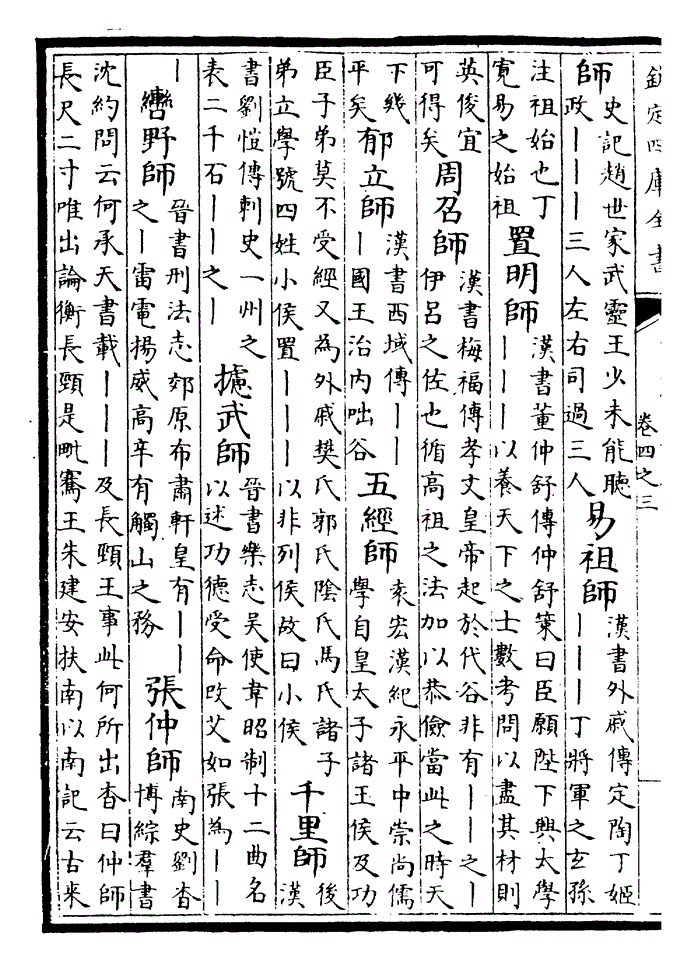 欽定四庫全書
卷四之三
師史記趙世家武靈王少未能聽政｜｜｜三人左右司過三人易祖師漢書外戚傳定陶丁姬｜｜｜丁將軍之玄孫
注祖始也丁寛易之始祖置明師漢書董仲舒傳仲舒策曰臣願陛下興太學｜｜｜以養天下之士數考問以盡其材則
英俊宜可得矣周召師漢書梅福傳孝文皇帝起於代谷非有｜｜之｜伊呂之佐也循高祖之法加以恭儉當此之時天
下幾平矣郁立師漢書西域傳｜｜｜國王治内咄谷五經師袁宏漢紀永平中崇尚儒學自皇太子諸王侯及功
臣子弟莫不受經又為外戚樊氏郭氏陰氏馬氏諸子弟立學號四姓小侯置｜｜｜以非列侯故曰小侯千里師後漢
書劉愷傳刺史一州之表二千石｜｜之｜攄武師晉書樂志吳使韋昭制十二曲名以述功德受命改艾如張為｜｜
｜轡野師晉書刑法志郊原布肅軒皇有｜｜之｜雷電揚威高辛有觸山之務張仲師南史劉杳博綜羣書
沈約問云何承天書載｜｜｜及長頸王事此何所出杳曰仲師長尺二寸唯出論衡長頸是毗騫王朱建安扶南以南記云古來